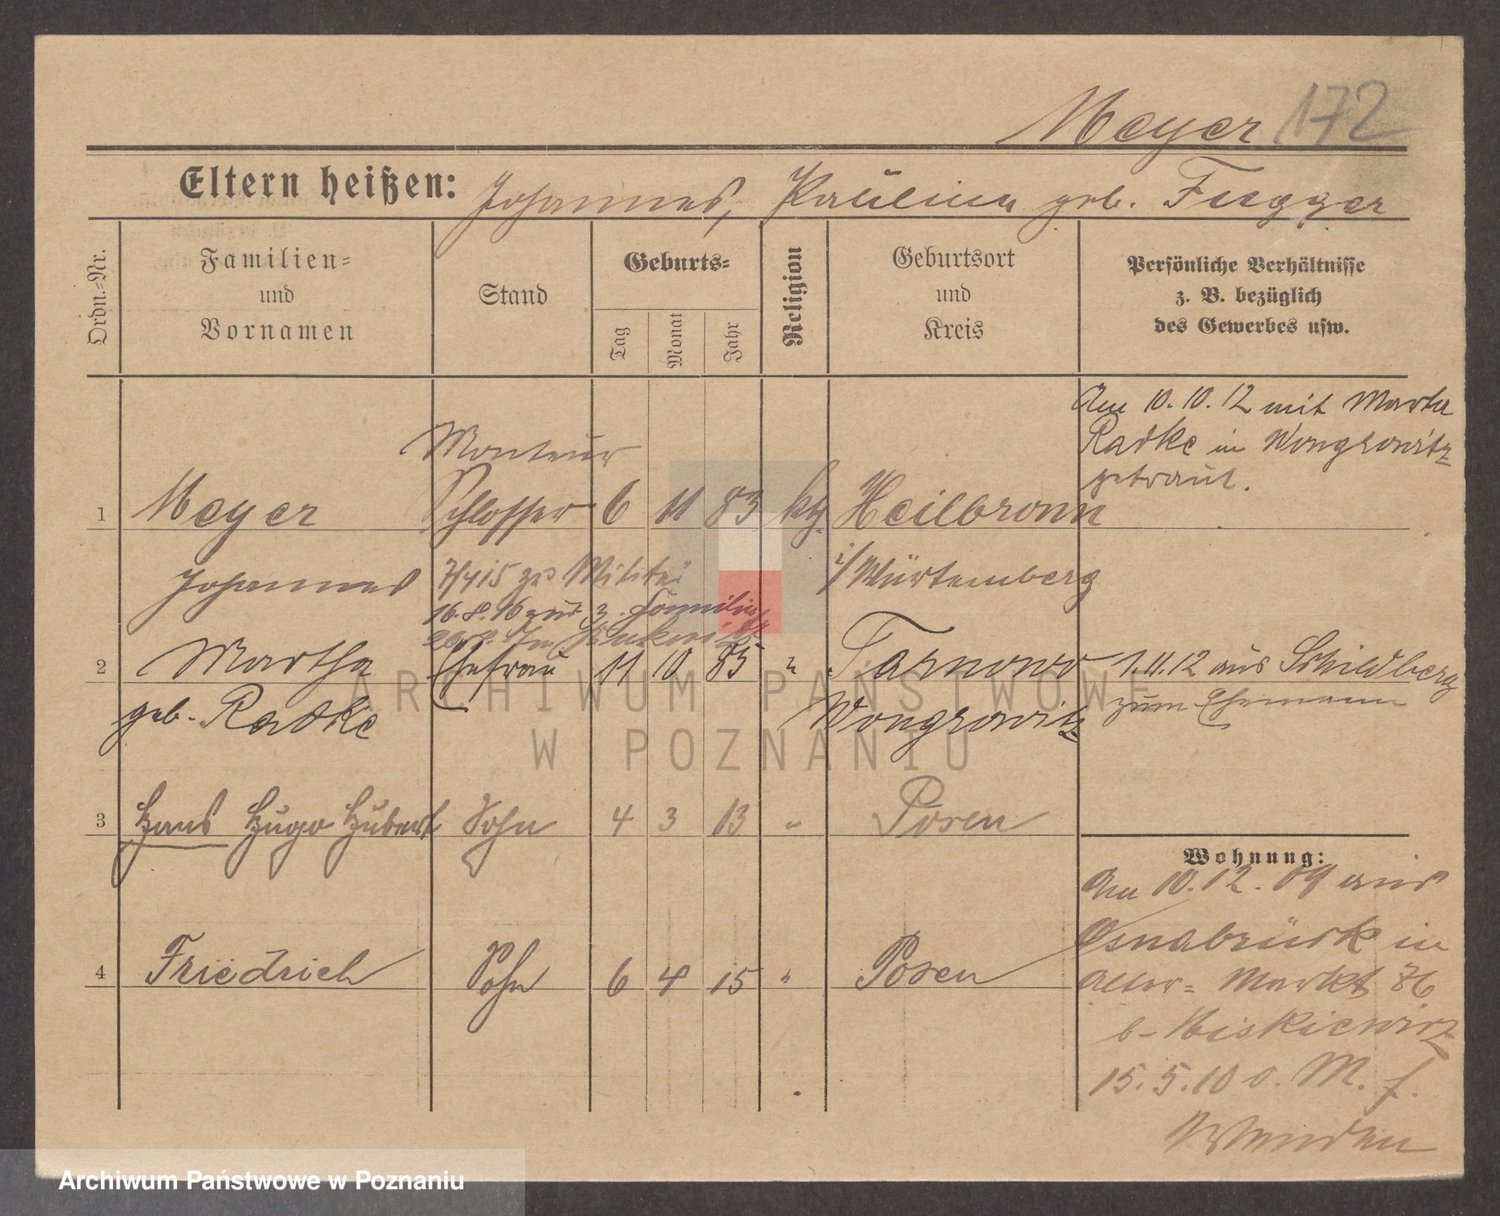 Meyer 172
Eltern heißen: Johannes, Paulina geb. Fugger
Ordn.-Nr.
Familien-
und
Vornamen
Stand
Geburts-
Tag
Monat
Jahr
Religion
Geburtsort
und
Kreis
Persönliche Verhältnisse
z. B. bezüglich
des Gewerbes usw.
Am 10.10.12 mit Marta
Radke in Wongrowitz
getraut.
Monteur
1 Meyer Schlosser 6 11 83 kth Heilbronn
Johannes
i/Würtemberg
7/4 15 zu Militär
16.8.16 aus z. Familie
2 Martha Ehefrau 11 10 85 " Tarnowo 1.11.12 aus Schildberg
geb. Radke Wongrowitz zum Ehemann
3 Hans Hugo Hubert Sohn 4 3 13 " Posen
Wohnung:
Am 10.12.09 aus
Osnabrück in
Alter-Markt 76
b-
15.5.10 o. M. f.
4 Friedrich Sohn 6 4 15 " Posen
ARCHIWUM PAŃSTWOWE
W POZNANIU
Archiwum Państwowe w Poznaniu